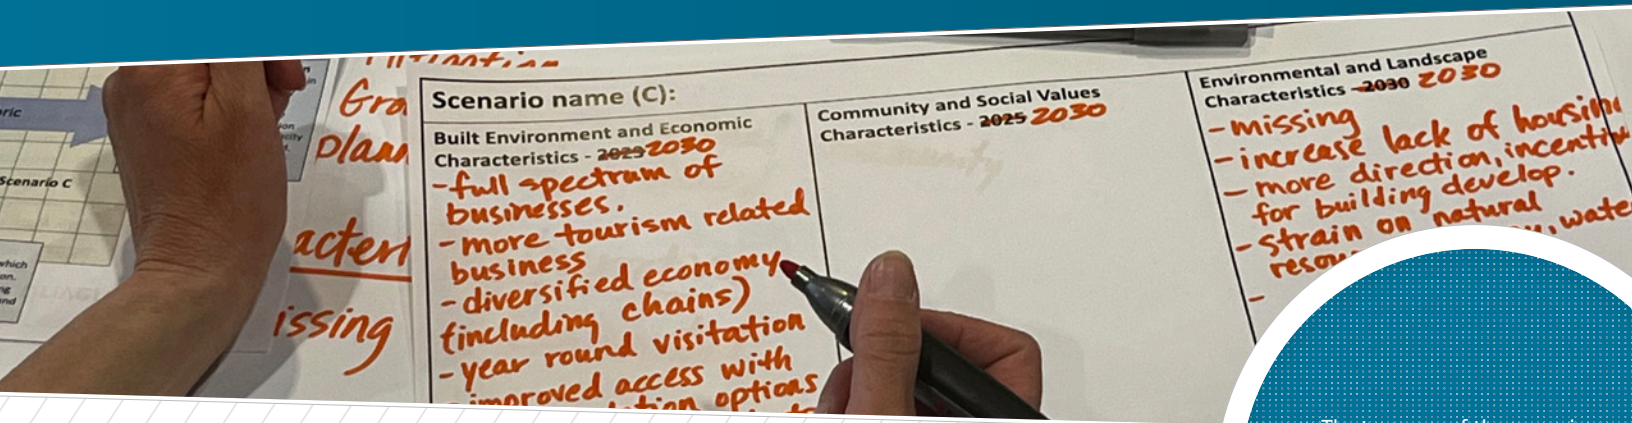 Gro
plann
acteri
issing
oric
Scenario C
which
on.
and
Scenario name (C):
Built Environment and Economic
Characteristics - 2025 2030
-full spectrum of
businesses.
-more tourism related
business
-diversified economy
(including chains)
-year round visitation
-improved access with
options
Community and Social Values
Characteristics - 2025 2030
Environmental and Landscape
Characteristics - 2030 2030
-missing
-increase lack of housing
- more direction, incentiv
for building develop.
- strain on natural
resou water
-